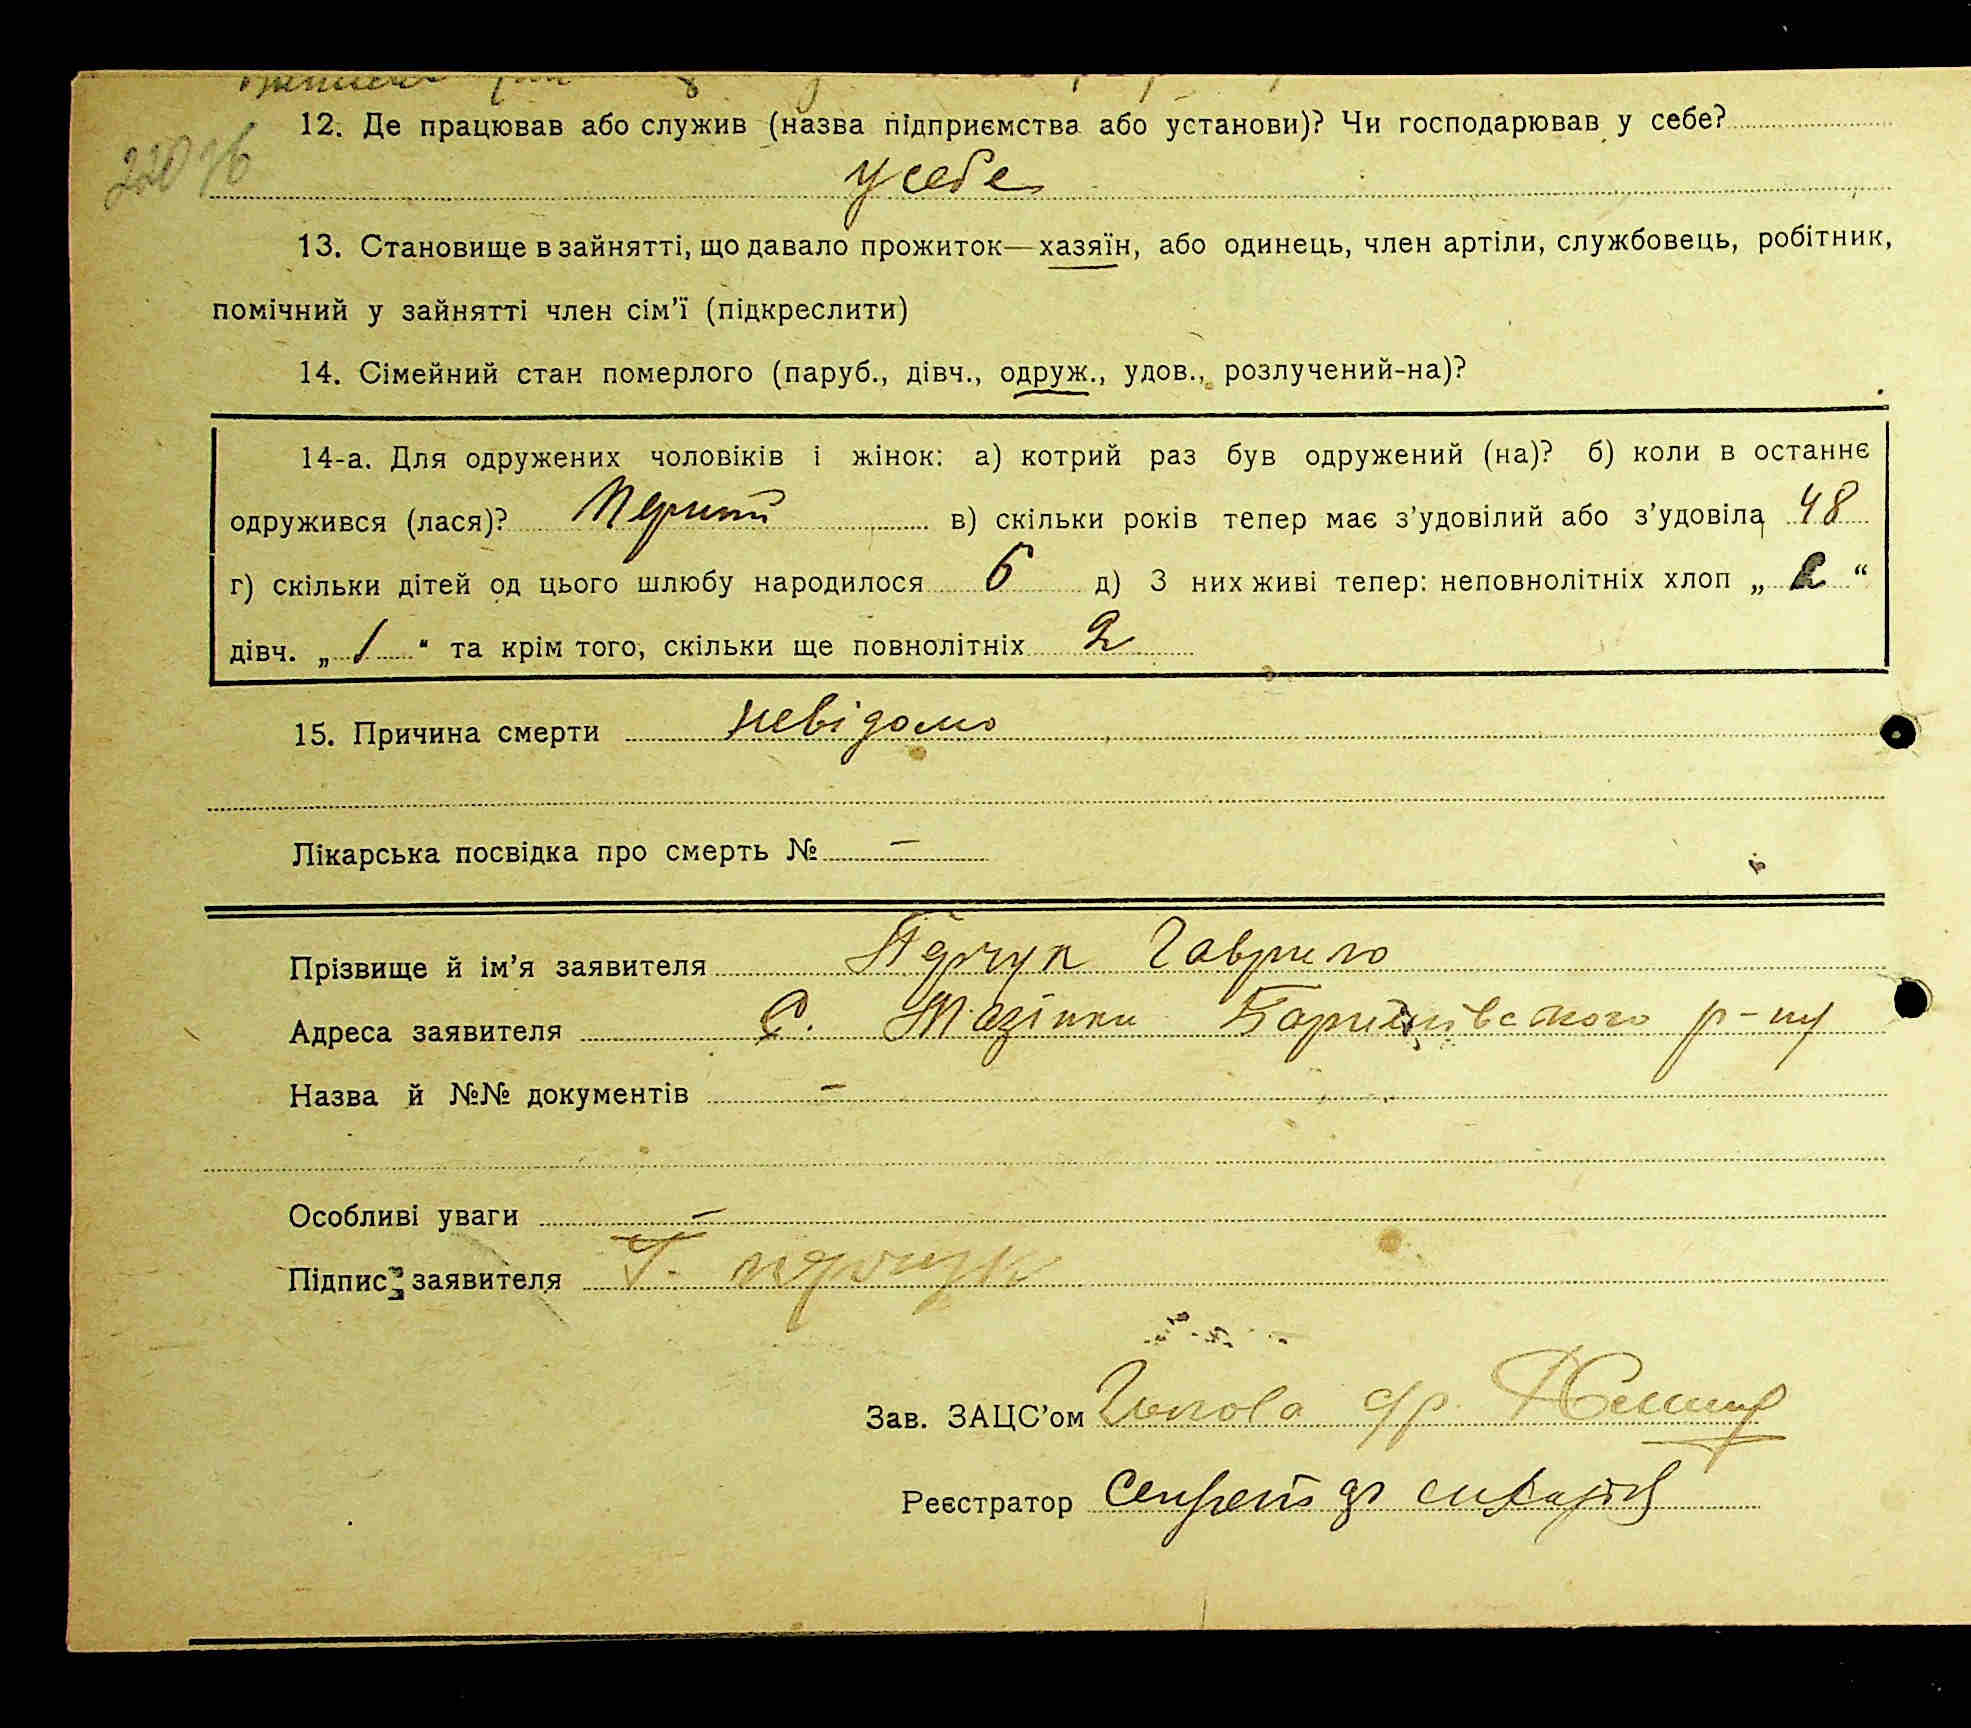 220 зв
12. Де працював або служив (назва підприємства або установи)? Чи господарював у себе?
у себе
13. Становище в зайнятті, що давало прожиток—хазяїн, або одинець, член артіли, службовець, робітник,
помічний у зайнятті член сім'ї (підкреслити)
14. Сімейний стан померлого (паруб., дівч., одруж., удов., розлучений-на)?
14-а. Для одружених чоловіків і жінок: а) котрий раз був одружений (на)? б) коли в останнє
одружився (лася)? Перший в) скільки років тепер має з'удовілий або з'удовіла 48
г) скільки дітей од цього шлюбу народилося 6 д) З них живі тепер: неповнолітніх хлоп „ 2 “
дівч. „ 1 “ та крім того, скільки ще повнолітніх 2
15. Причина смерти невідомо
Лікарська посвідка про смерть № —
Прізвище й ім'я заявителя Гаврило
Адреса заявителя С. Мазінки р-ну
Назва й №№ документів —
Особливі уваги —
Підпис заявителя Г.
Зав. ЗАЦС'ом Голова с/р
Реєстратор Секрет